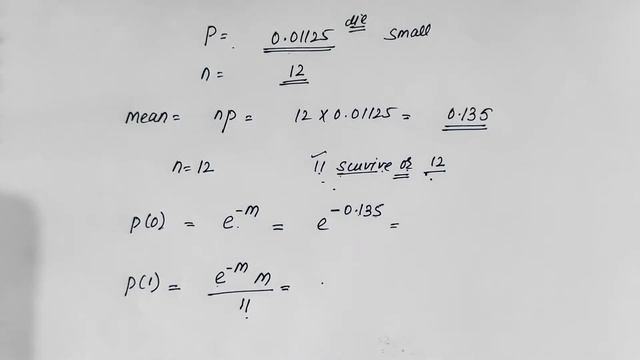 P = 0.01125 die small
n = 12
mean = np = 12 × 0.01125 = 0.135
n = 12 11 scuvive or 12
p(0) = e^{-m} = e^{-0.135} =
p(1) = \frac{e^{-m} m}{1!} =